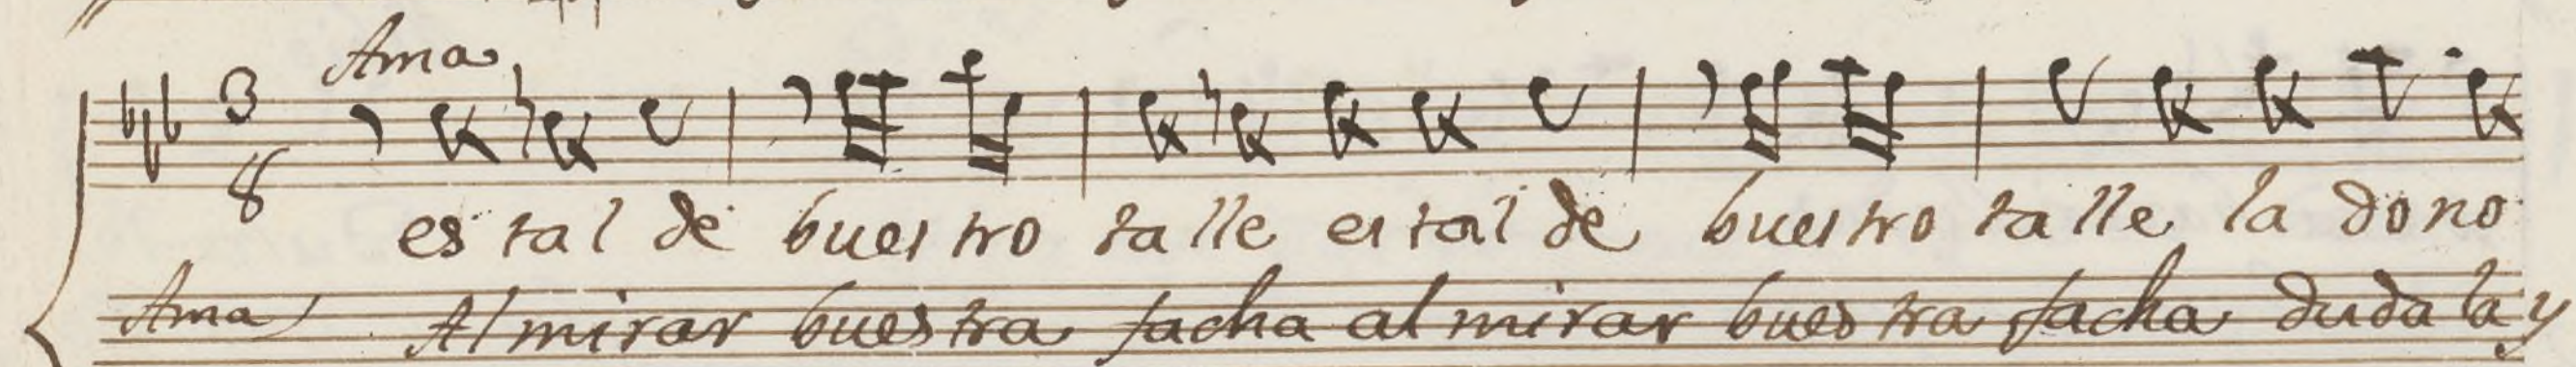 Ama
3
8
es tal de bues tro ta lle es tal de bues tro ta lle la do no
Ama Al mirar bues tra facha al mirar bues tra facha duda la y